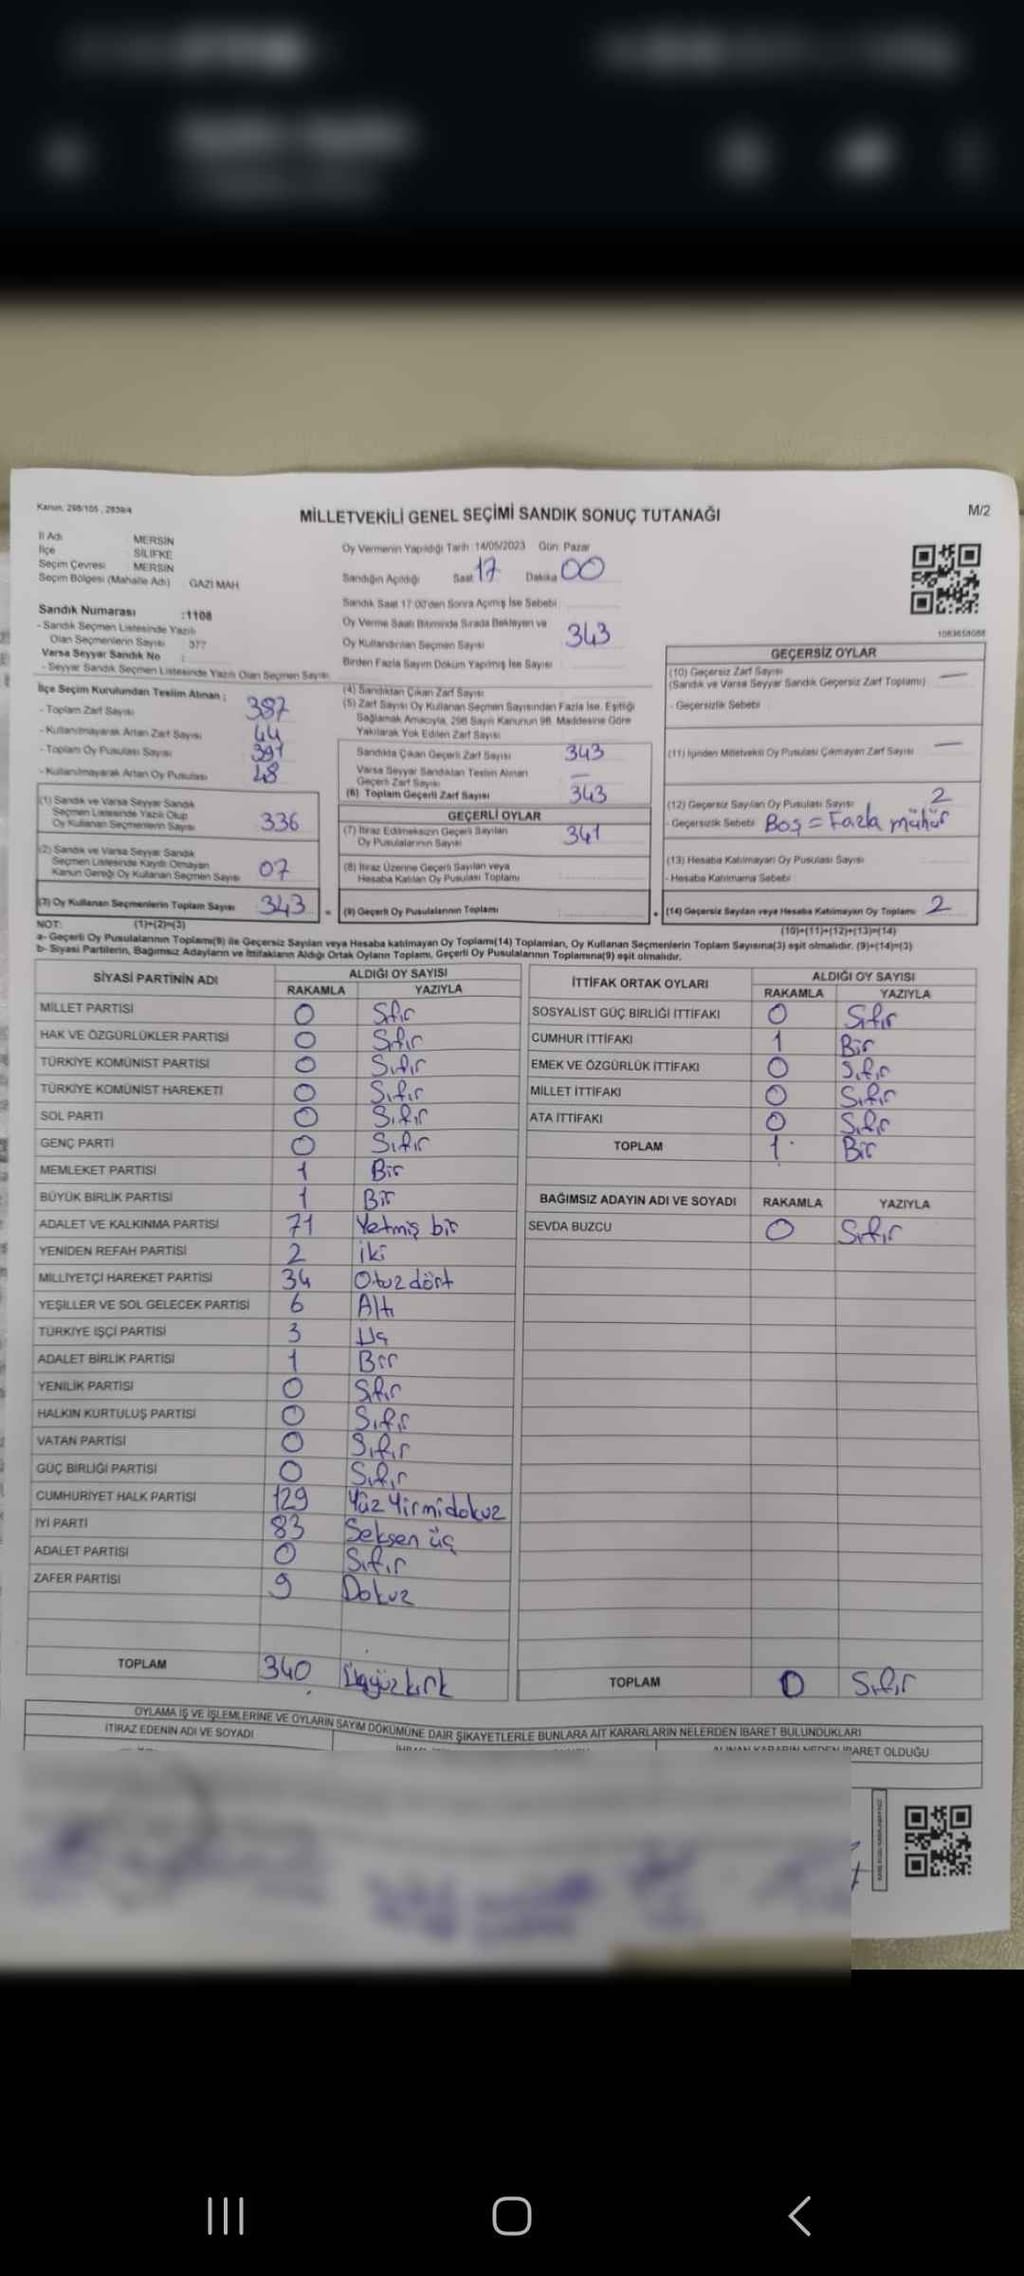 Kanun, 298/105, 2839/4
MİLLETVEKİLİ GENEL SEÇİMİ SANDIK SONUÇ TUTANAĞI
M/2
İl Adı : MERSİN
İlçe : SİLİFKE
Seçim Çevresi : MERSİN
Seçim Bölgesi (Mahalle Adı) GAZİ MAH
Sandık Numarası :1108
- Sandık Seçmen Listesinde Yazılı
Olan Seçmenlerin Sayısı : 377
Varsa Seyyar Sandık No :
- Seyyar Sandık Seçmen Listesinde Yazılı Olan Seçmen Sayısı
Oy Vermenin Yapıldığı Tarih :14/05/2023 Gün: Pazar
Sandığın Açıldığı Saat 17 Dakika 00
Sandık Saat 17:00'den Sonra Açılmış İse Sebebi
Oy Verme Saati Bitiminde Sırada Bekleyen ve
Oy Kullandırılan Seçmen Sayısı 343
Birden Fazla Sayım Döküm Yapılmış İse Sayısı
1083658088
İlçe Seçim Kurulundan Teslim Alınan ;
- Toplam Zarf Sayısı 387
- Kullanılmayarak Artan Zarf Sayısı 44
- Toplam Oy Pusulası Sayısı 391
- Kullanılmayarak Artan Oy Pusulası 48
(1) Sandık ve Varsa Seyyar Sandık
Seçmen Listesinde Yazılı Olup
Oy Kullanan Seçmenlerin Sayısı 336
(2) Sandık ve Varsa Seyyar Sandık
Seçmen Listesinde Kayıtlı Olmayan
Kanun Gereği Oy Kullanan Seçmen Sayısı 07
(3) Oy Kullanan Seçmenlerin Toplam Sayısı 343
(4) Sandıktan Çıkan Zarf Sayısı
(5) Zarf Sayısı Oy Kullanan Seçmen Sayısından Fazla İse, Eşitliği
Sağlamak Amacıyla, 298 Sayılı Kanunun 98. Maddesine Göre
Yakılarak Yok Edilen Zarf Sayısı
Sandıkta Çıkan Geçerli Zarf Sayısı 343
Varsa Seyyar Sandıktan Teslim Alınan
Geçerli Zarf Sayısı —
(6) Toplam Geçerli Zarf Sayısı 343
GEÇERLİ OYLAR
(7) İtiraz Edilmeksizin Geçerli Sayılan
Oy Pusulalarının Sayısı 341
(8) İtiraz Üzerine Geçerli Sayılan veya
Hesaba Katılan Oy Pusulası Toplamı
= (9) Geçerli Oy Pusulalarının Toplamı
GEÇERSİZ OYLAR
(10) Geçersiz Zarf Sayısı —
(Sandık ve Varsa Seyyar Sandık Geçersiz Zarf Toplamı)
- Geçersizlik Sebebi
(11) İçinden Milletvekili Oy Pusulası Çıkmayan Zarf Sayısı —
(12) Geçersiz Sayılan Oy Pusulası Sayısı 2
- Geçersizlik Sebebi Boş = Fazla mühür
(13) Hesaba Katılmayan Oy Pusulası Sayısı
- Hesaba Katılmama Sebebi :
+ (14) Geçersiz Sayılan veya Hesaba Katılmayan Oy Toplamı 2
NOT: (1)+(2)=(3)
(10)+(11)+(12)+(13)=(14)
a- Geçerli Oy Pusulalarının Toplamı(9) ile Geçersiz Sayılan veya Hesaba katılmayan Oy Toplamı(14) Toplamları, Oy Kullanan Seçmenlerin Toplam Sayısına(3) eşit olmalıdır. (9)+(14)=(3)
b- Siyasi Partilerin, Bağımsız Adayların ve İttifakların Aldığı Ortak Oyların Toplamı, Geçerli Oy Pusulalarının Toplamına(9) eşit olmalıdır.
SİYASİ PARTİNİN ADI ALDIĞI OY SAYISI
RAKAMLA YAZIYLA
MİLLET PARTİSİ 0 Sıfır
HAK VE ÖZGÜRLÜKLER PARTİSİ 0 Sıfır
TÜRKİYE KOMÜNİST PARTİSİ 0 Sıfır
TÜRKİYE KOMÜNİST HAREKETİ 0 Sıfır
SOL PARTİ 0 Sıfır
GENÇ PARTİ 0 Sıfır
MEMLEKET PARTİSİ 1 Bir
BÜYÜK BİRLİK PARTİSİ 1 Bir
ADALET VE KALKINMA PARTİSİ 71 Yetmiş bir
YENİDEN REFAH PARTİSİ 2 iki
MİLLİYETÇİ HAREKET PARTİSİ 34 Otuz dört
YEŞİLLER VE SOL GELECEK PARTİSİ 6 Altı
TÜRKİYE İŞÇİ PARTİSİ 3 Üç
ADALET BİRLİK PARTİSİ 1 Bir
YENİLİK PARTİSİ 0 Sıfır
HALKIN KURTULUŞ PARTİSİ 0 Sıfır
VATAN PARTİSİ 0 Sıfır
GÜÇ BİRLİĞİ PARTİSİ 0 Sıfır
CUMHURİYET HALK PARTİSİ 129 Yüz Yirmidokuz
İYİ PARTİ 83 Seksen üç
ADALET PARTİSİ 0 Sıfır
ZAFER PARTİSİ 9 Dokuz
TOPLAM 340 Üçyüzkırk
İTTİFAK ORTAK OYLARI ALDIĞI OY SAYISI
RAKAMLA YAZIYLA
SOSYALİST GÜÇ BİRLİĞİ İTTİFAKI 0 Sıfır
CUMHUR İTTİFAKI 1 Bir
EMEK VE ÖZGÜRLÜK İTTİFAKI 0 Sıfır
MİLLET İTTİFAKI 0 Sıfır
ATA İTTİFAKI 0 Sıfır
TOPLAM 1 Bir
BAĞIMSIZ ADAYIN ADI VE SOYADI RAKAMLA YAZIYLA
SEVDA BUZCU 0 Sıfır
TOPLAM 0 Sıfır
OYLAMA İŞ VE İŞLEMLERİNE VE OYLARIN SAYIM DÖKÜMÜNE DAİR ŞİKAYETLERLE BUNLARA AİT KARARLARIN NELERDEN İBARET BULUNDUKLARI
İTİRAZ EDENİN ADI VE SOYADI
ALINAN KARARIN NEDEN İBARET OLDUĞU